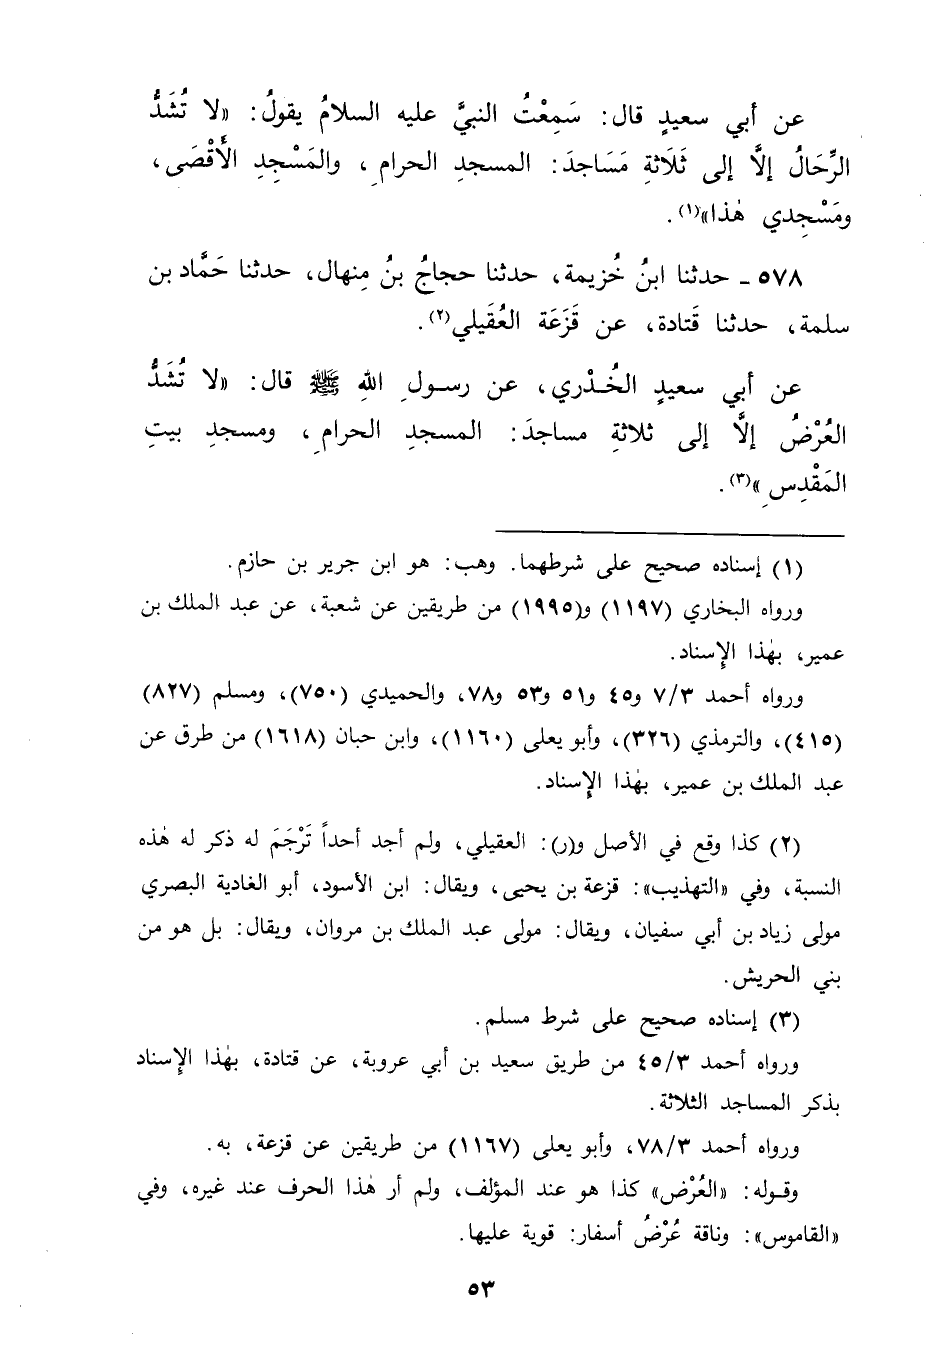 عن أبي سعيدٍ قال: سَمِعْتُ النبيَّ عليه السلامُ يقولُ: «لا تُشَدُّ
الرِّحَالُ إلاَّ إلى ثَلَاثةِ مَسَاجدَ: المسجدِ الحرامِ، والمَسْجِدِ الأَقْصَى،
ومَسْجِدي هٰذا»(١).
٥٧٨ - حدثنا ابنُ خُزيمة، حدثنا حجاجُ بنُ مِنهال، حدثنا حَمَّاد بن
سلمة، حدثنا قَتادة، عن قَزَعَة العُقَيلي(٢).
عن أبي سعيدٍ الخُدْري، عن رسولِ اللهِ ﷺ قال: «لا تُشَدُّ
العُرْضُ إلَّا إلى ثلاثةِ مساجدَ: المسجدِ الحرامِ، ومسجدِ بيتِ
المَقْدِسِ»(٣).
(١) إسناده صحيح على شرطهما. وهب: هو ابن جرير بن حازم.
ورواه البخاري (١١٩٧) و(١٩٩٥) من طريقين عن شعبة، عن عبد الملك بن
عمير، بهٰذا الإِسناد.
ورواه أحمد ٧/٣ و٤٥ و٥١ و٥٣ و٧٨، والحميدي (٧٥٠)، ومسلم (٨٢٧)
(٤١٥)، والترمذي (٣٢٦)، وأبو يعلى (١١٦٠)، وابن حبان (١٦١٨) من طرق عن
عبد الملك بن عمير، بهٰذا الإِسناد.
(٢) كذا وقع في الأصل و(ر): العقيلي، ولم أجد أحداً تَرْجَمَ له ذكر له هٰذه
النسبة، وفي «التهذيب»: قزعة بن يحيى، ويقال: ابن الأسود، أبو الغادية البصري
مولى زياد بن أبي سفيان، ويقال: مولى عبد الملك بن مروان، ويقال: بل هو من
بني الحريش.
(٣) إسناده صحيح على شرط مسلم.
ورواه أحمد ٤٥/٣ من طريق سعيد بن أبي عروبة، عن قتادة، بهٰذا الإِسناد
بذكر المساجد الثلاثة.
ورواه أحمد ٧٨/٣، وأبو يعلى (١١٦٧) من طريقين عن قزعة، به.
وقوله: «العُرْض» كذا هو عند المؤلف، ولم أر هٰذا الحرف عند غيره، وفي
«القاموس»: وناقة عُرْضُ أسفار: قوية عليها.
٥٣